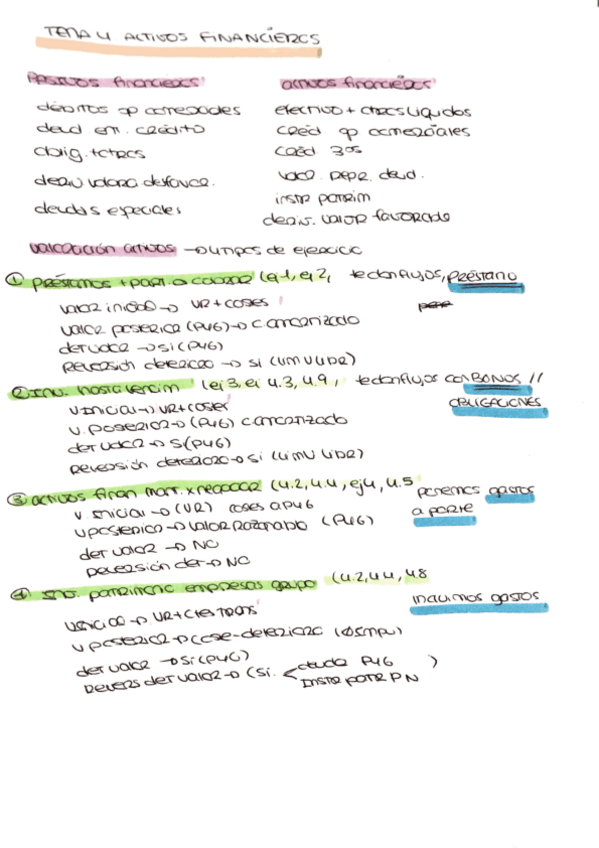 TEMA 4 ACTIVOS FINANCIEROS
PASIVOS financieros
activos financieros
débitos op comerciales
efectivo + otros líquidos
deud em. crédito
créd op comerciales
oblig. + otros
créd. 3os
deriv valorac desfavor.
valor. repr. deud.
deudas especiales
instr patrim
deriv. valor favorable
valoración activos → 4 tipos de ejercicio
① préstamos + part a cobrar (ej 1, ej 2, te dan flujos, préstamo
valor inicial → VR + costes
valor posterior (PyG) → c. amortizado
det valor → Si (PyG)
Reversión deterioro → si (LIM V LIBR)
② Inv. hasta vencim (ej 3, ej 4.3, 4.9, te dan flujos con BONOS //
OBLIGACIONES
V inicial → VR + costes
v. posterior → (PyG) c amortizado
det valor → Si (PyG)
Reversión deterioro → si (LIM V LIBR)
③ activos finan mant. x negociar (4.2, 4.4, ej 4, 4.5 ponemos gastos
a parte
v. inicial → (VR) costes a PyG
v posterior → valor razonable (PyG)
det valor → NO
Reversión det → NO
④ Inv. patrimonio empresas grupo (4.2, 4.4, 4.8
incluimos gastos
V inicial → VR + ctes trans
v posterior → coste - deterioro
det valor → Si (PyG)
Revers det valor → (Si. deuda PyG )
Instr patr PN